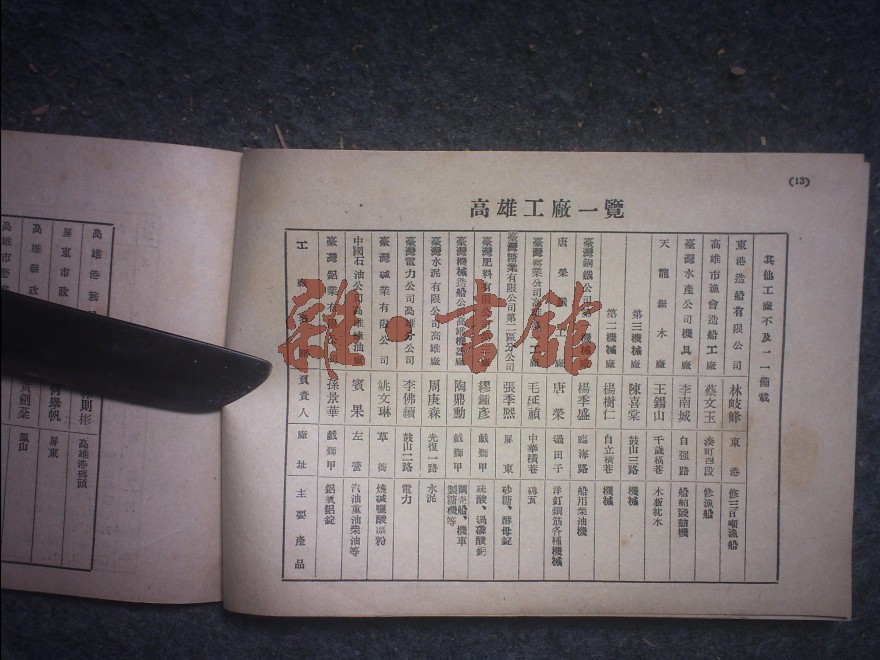 (13)
高雄工廠一覽
工廠 負責人 廠址 主要產品
臺灣鋁業有限公司 孫景華 戲獅甲 鋁氧鋁錠
中國石油公司高雄煉油廠 賓果 左營 汽油重油柴油等
臺灣碱業有限公司 姚文琳 草衙 燒碱鹽酸漂粉
臺灣電力公司高雄分公司 李佛續 鼓山二路 電力
臺灣水泥有限公司高雄廠 周庚森 光復一路 水泥
臺灣機械造船公司高雄機器廠 陶鼎勳 戲獅甲 鋼壳船、機車製糖機等
臺灣肥料有限公司 繆鍾彥 戲獅甲 硫酸、過磷酸鈣
臺灣糖業有限公司第二區分公司 張季熙 屏東 砂糖、酵母錠
臺灣窯業公司高雄第一工廠 毛延禎 中華橫巷 磚瓦
唐榮鐵工廠 唐榮 過田子 洋釘鋼筋各種機械
臺灣鋼鐵公司第一機械廠 楊季盛 臨海路 船用柴油機
第二機械廠 楊樹仁 自立橫巷 機械
第三機械廠 陳喜棠 鼓山三路 機械
天龍鋸木廠 王錫山 千歲橫巷 木板枕木
臺灣水產公司機具廠 李南城 自强路 船舶發動機
高雄市漁會造船工廠 蔡文玉 湊町四段 修漁船
東港造船有限公司 林岐峰 東港 修三百噸漁船
其他工廠不及一一備載
高雄港務 則彬 高雄港碼頭
屏東市政 舉帆 屏東
高雄縣政 黃劍棻 鳳山
高雄市警